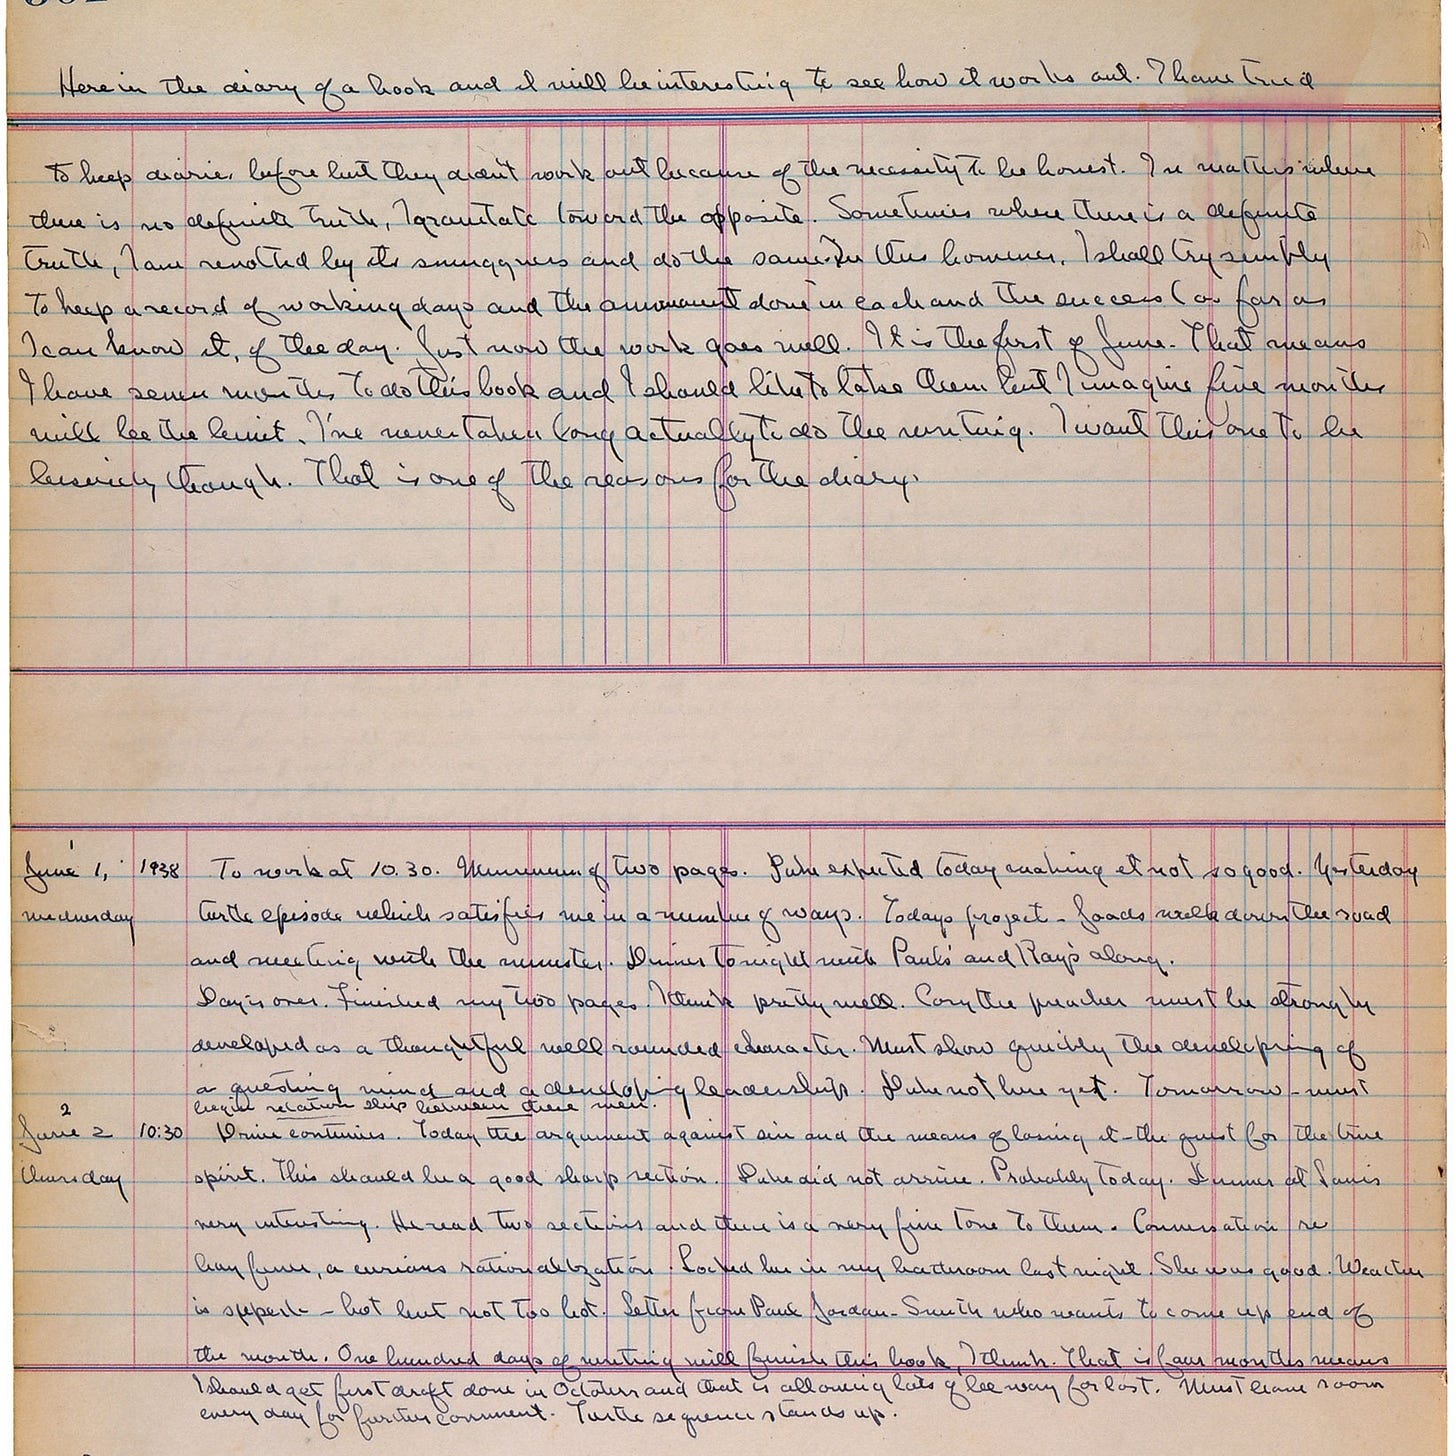 Here is the diary of a book and it will be interesting to see how it works out. I have tried
to keep diaries before but they didn't work out because of the necessity to be honest. In matters where
there is no definite truth, I gravitate toward the opposite. Sometimes where there is a definite
truth, I am revolted by its smugness and do the same. In this however, I shall try simply
to keep a record of working days and the amount done in each and the success (as far as
I can know it) of the day. Just now the work goes well. It is the first of June. That means
I have seven months to do this book and I should like to take them but I imagine five months
will be the limit. I've never taken long actually to do the writing. I want this one to be
leisurely though. That is one of the reasons for the diary.
June 1, 1938 To work at 10.30. Minimum of two pages. Duke expected today making it not so good. Yesterday
Wednesday turtle episode which satisfies me in a number of ways. Todays project - Joads walk down the road
and meeting with the minister. Dinner tonight with Pauls and Rays along.
Day is over. Finished my two pages. I think pretty well. Casy the preacher must be strongly
developed as a thoughtful well rounded character. Must show quickly the developing of
a questing mind and a developing leadership. Duke not here yet. Tomorrow - must
begin relationship between these men.
2
June 2 10:30 Drive continues. Today the argument against sin and the means of losing it - the quest for the true
Thursday spirit. This should be a good sharp section. Duke did not arrive. Probably today. Dinner at
very interesting. He read two sections and there is a very fine tone to them. Conversation re
, a curious rationalization. her in my last night. She was good. Weather
is superb - hot but not too hot. Letter from Paul Jordan-Smith who wants to come up end of
the month. One hundred days of writing will finish this book, I think. That is four months means
I should get first draft done in October and that is allowing lots of lee way for lost. Must leave room
every day for further comment. Turtle sequence stands up.